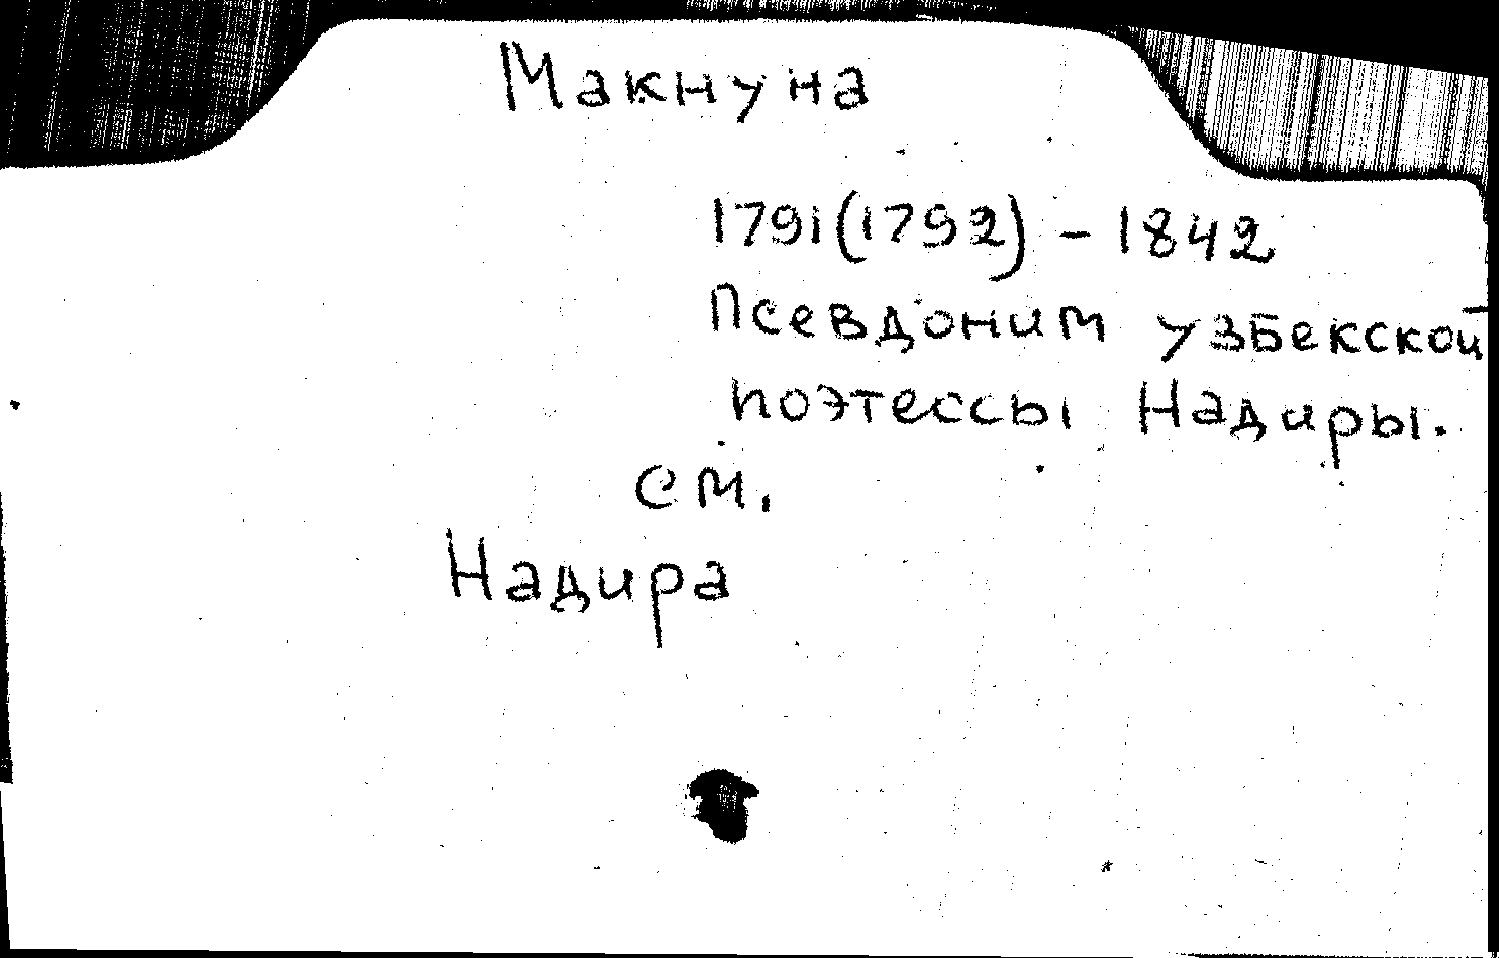 Макнуна
1791(1792) - 1842
Псевдоним узбекской
поэтессы Надиры.
см.
Надира